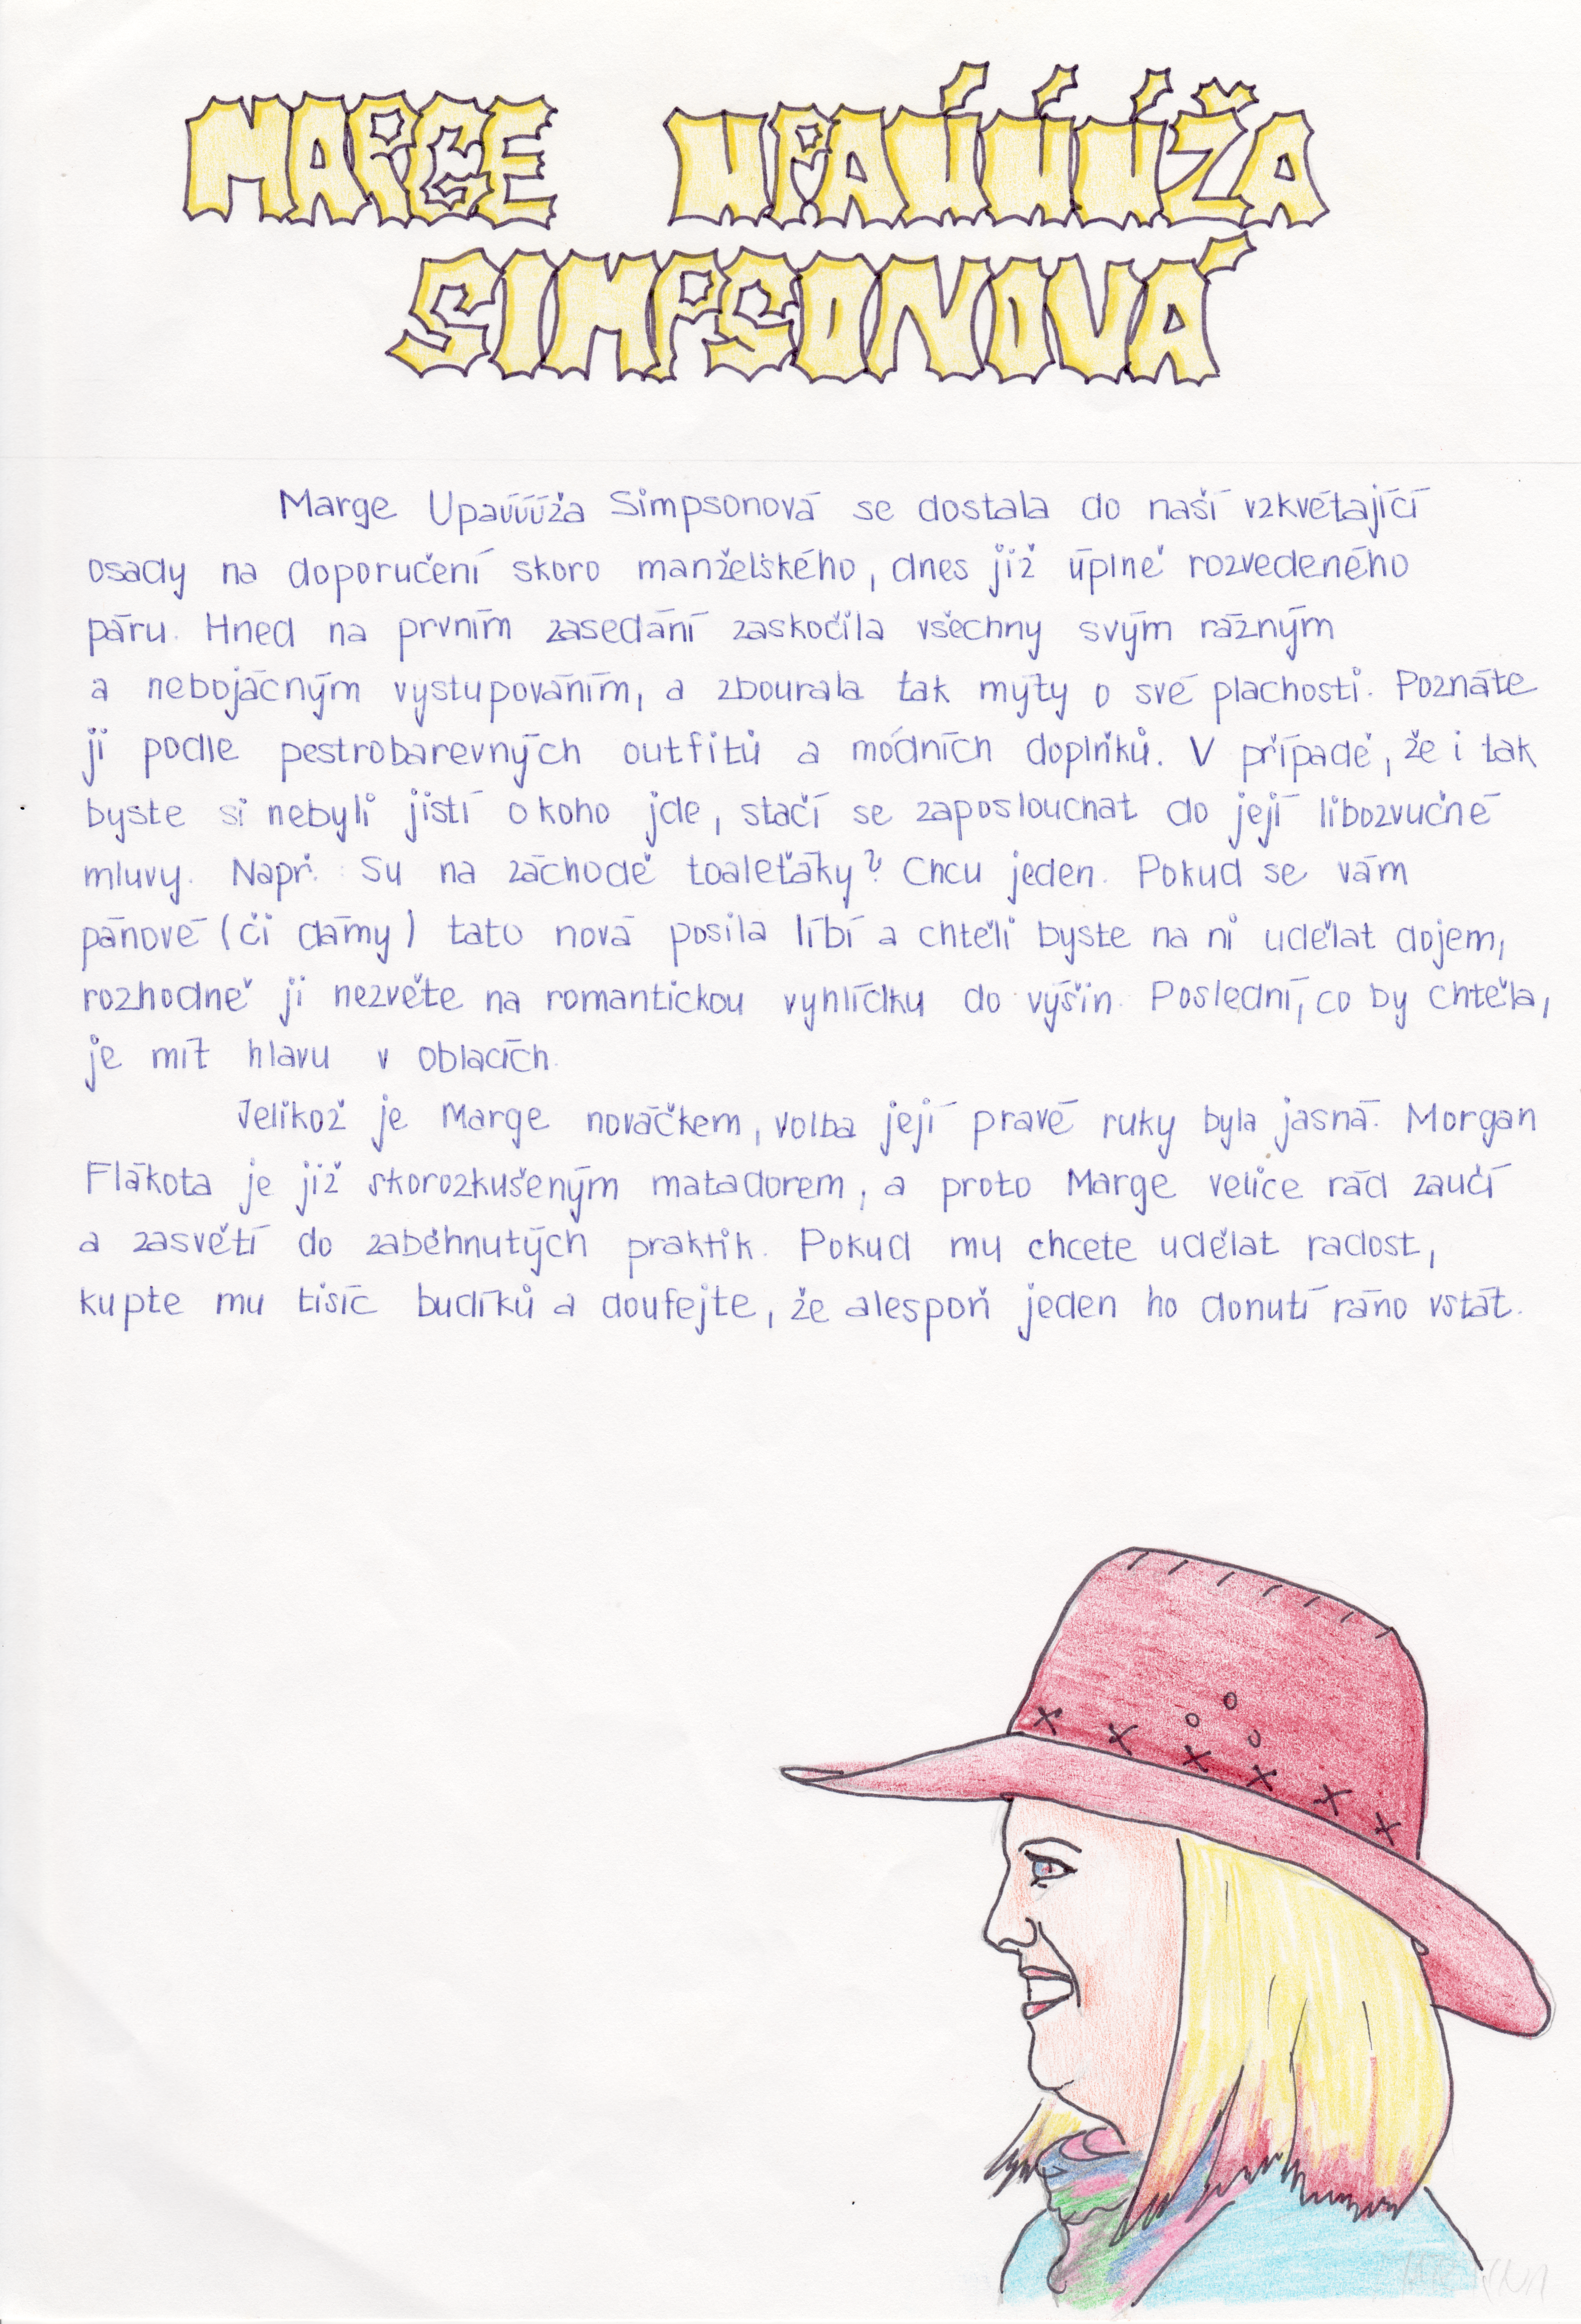 MARGE UPAÚÚÚŽA
SIMPSONOVÁ
Marge Upaúúúža Simpsonová se dostala do naší vzkvétající
osady na doporučení skoro manželského, dnes již úplně rozvedeného
páru. Hned na prvním zasedání zaskočila všechny svým rázným
a nebojácným vystupováním, a zbourala tak mýty o své plachosti. Poznáte
ji podle pestrobarevných outfitů a módních doplňků. V případě, že i tak
byste si nebyli jistí o koho jde, stačí se zaposlouchat do její libozvučné
mluvy. Např. Su na záchodě toaleťáky? Chcu jeden. Pokud se vám
pánové (či dámy) tato nová posila líbí a chtěli byste na ni udělat dojem,
rozhodně ji nezvěte na romantickou vyhlídku do výšin. Poslední, co by chtěla,
je mít hlavu v oblacích.
Jelikož je Marge nováčkem, volba její pravé ruky byla jasná. Morgan
Flákota je již skorozkušeným matadorem, a proto Marge velice rád zaučí
a zasvětí do zaběhnutých praktik. Pokud mu chcete udělat radost,
kupte mu tisíc budíků a doufejte, že alespoň jeden ho donutí ráno vstát.